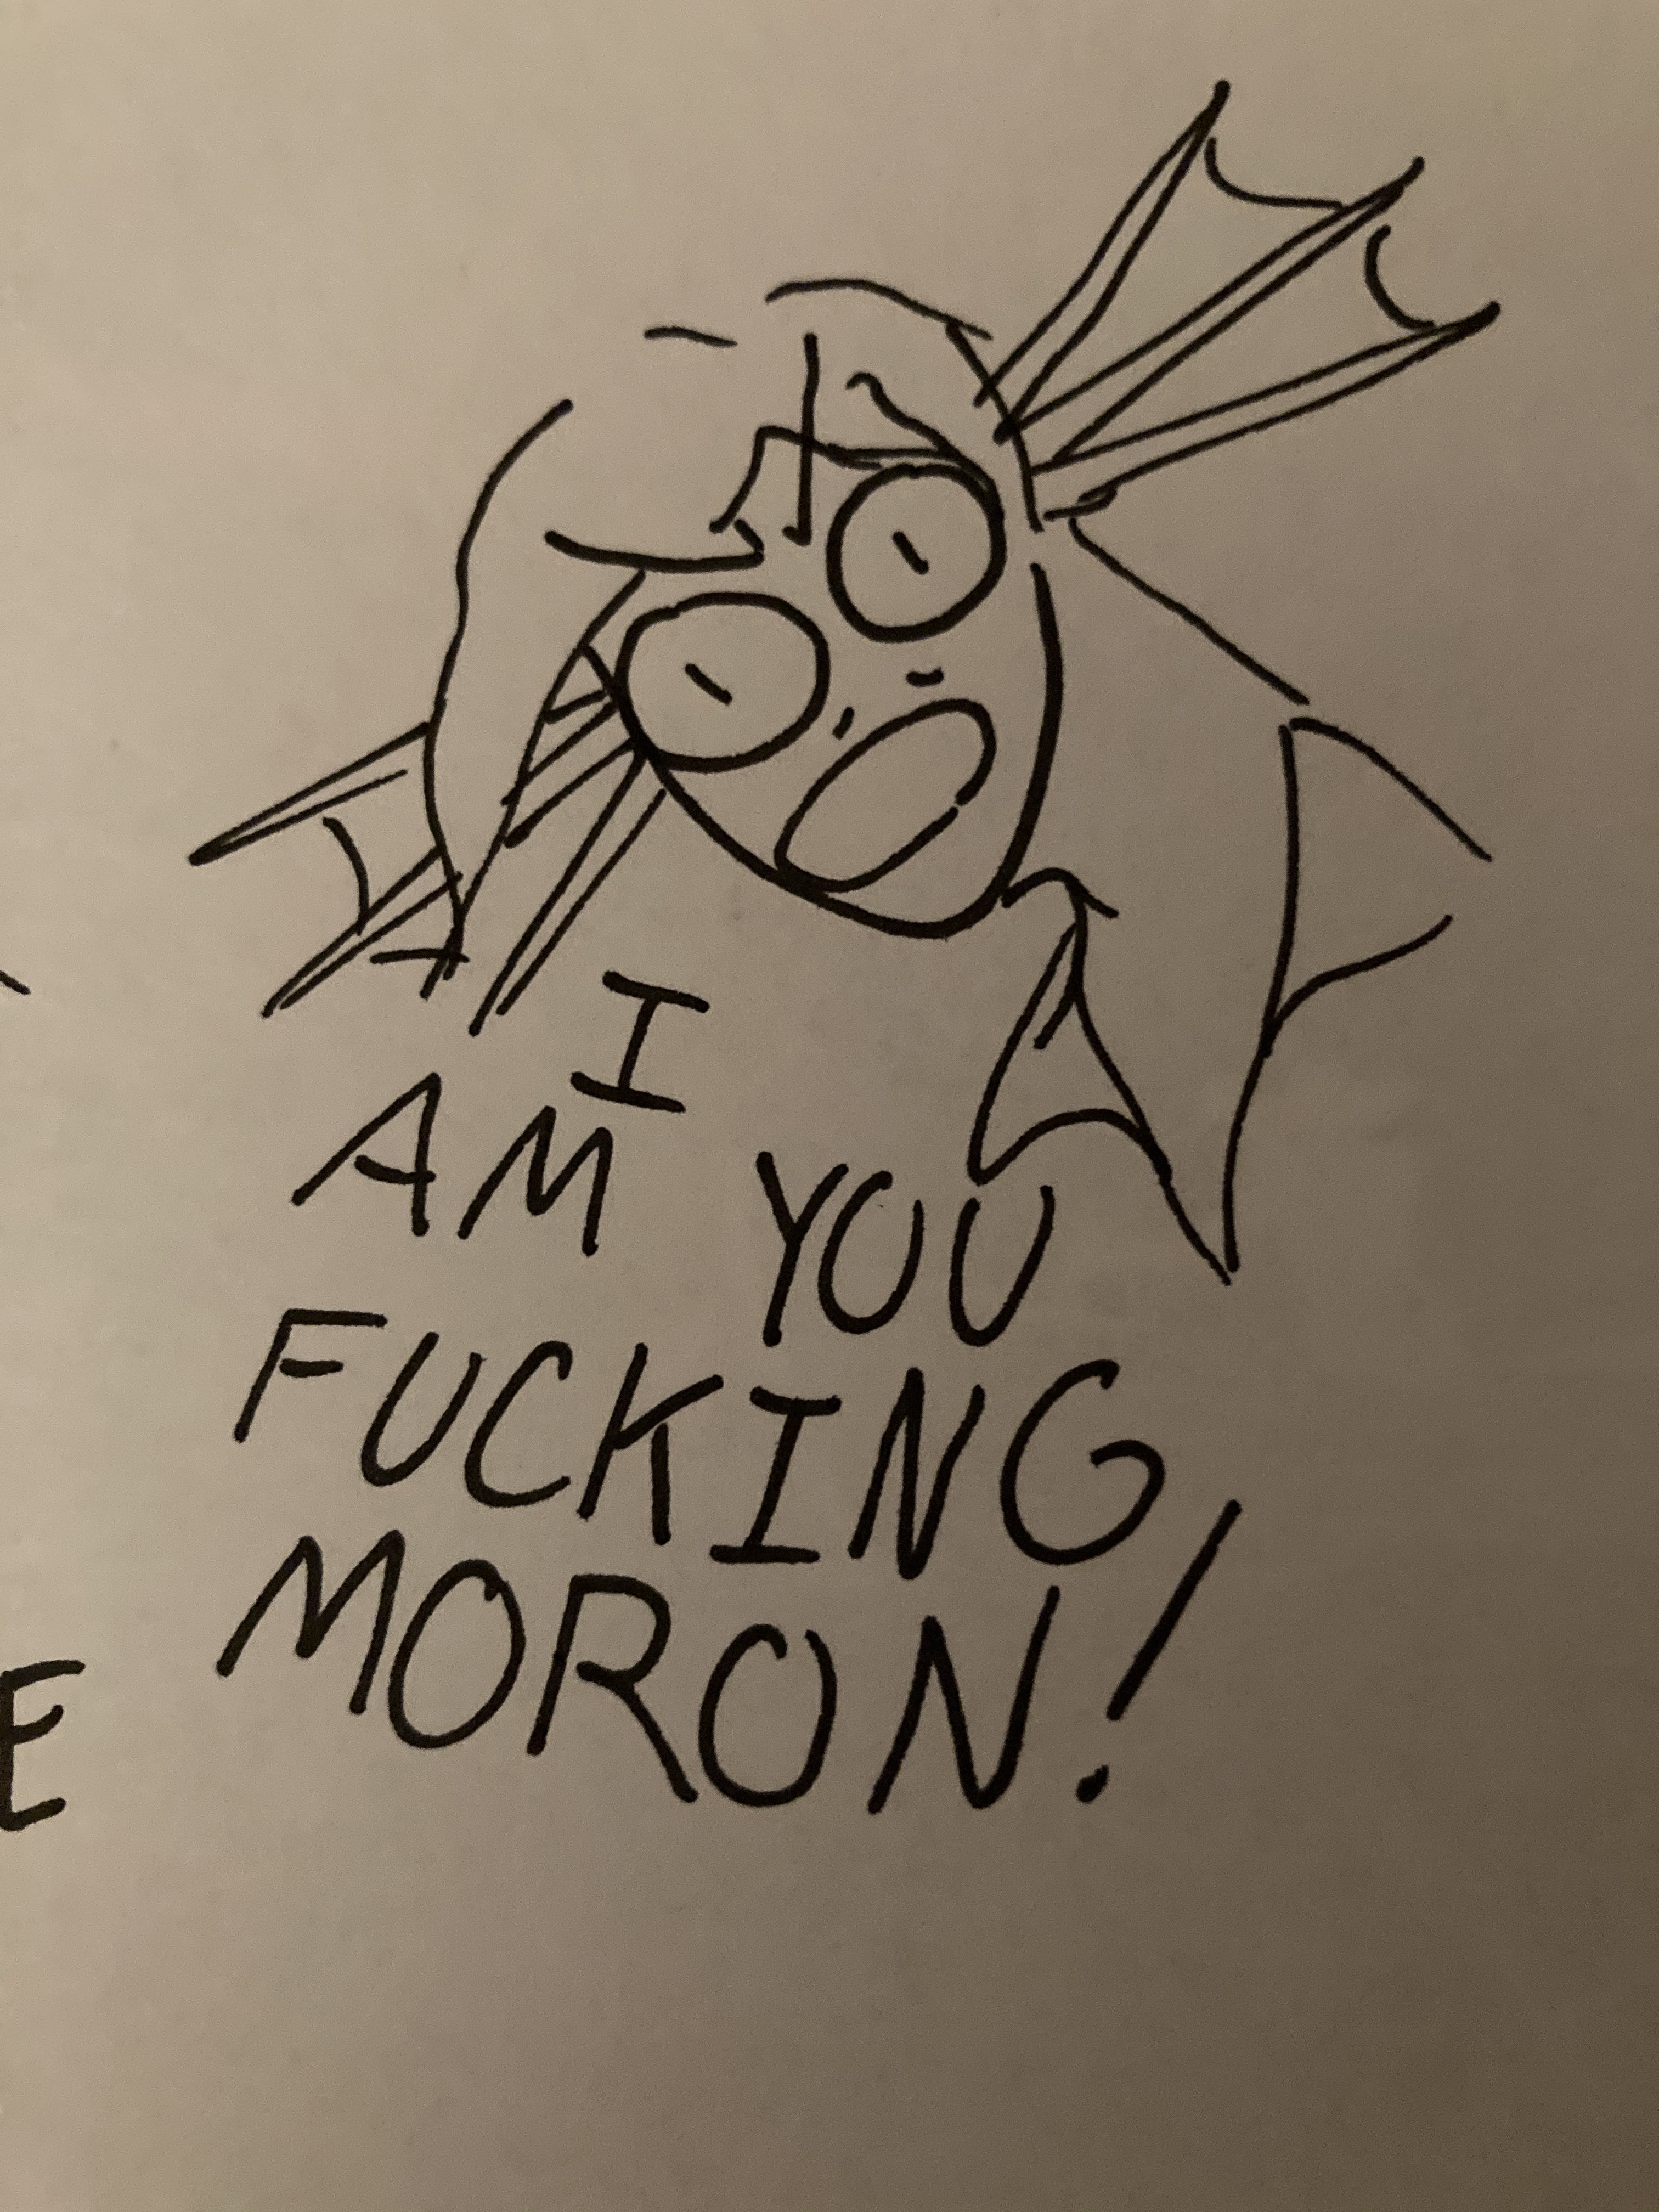 I
AM YOU
FUCKING
MORON!
E